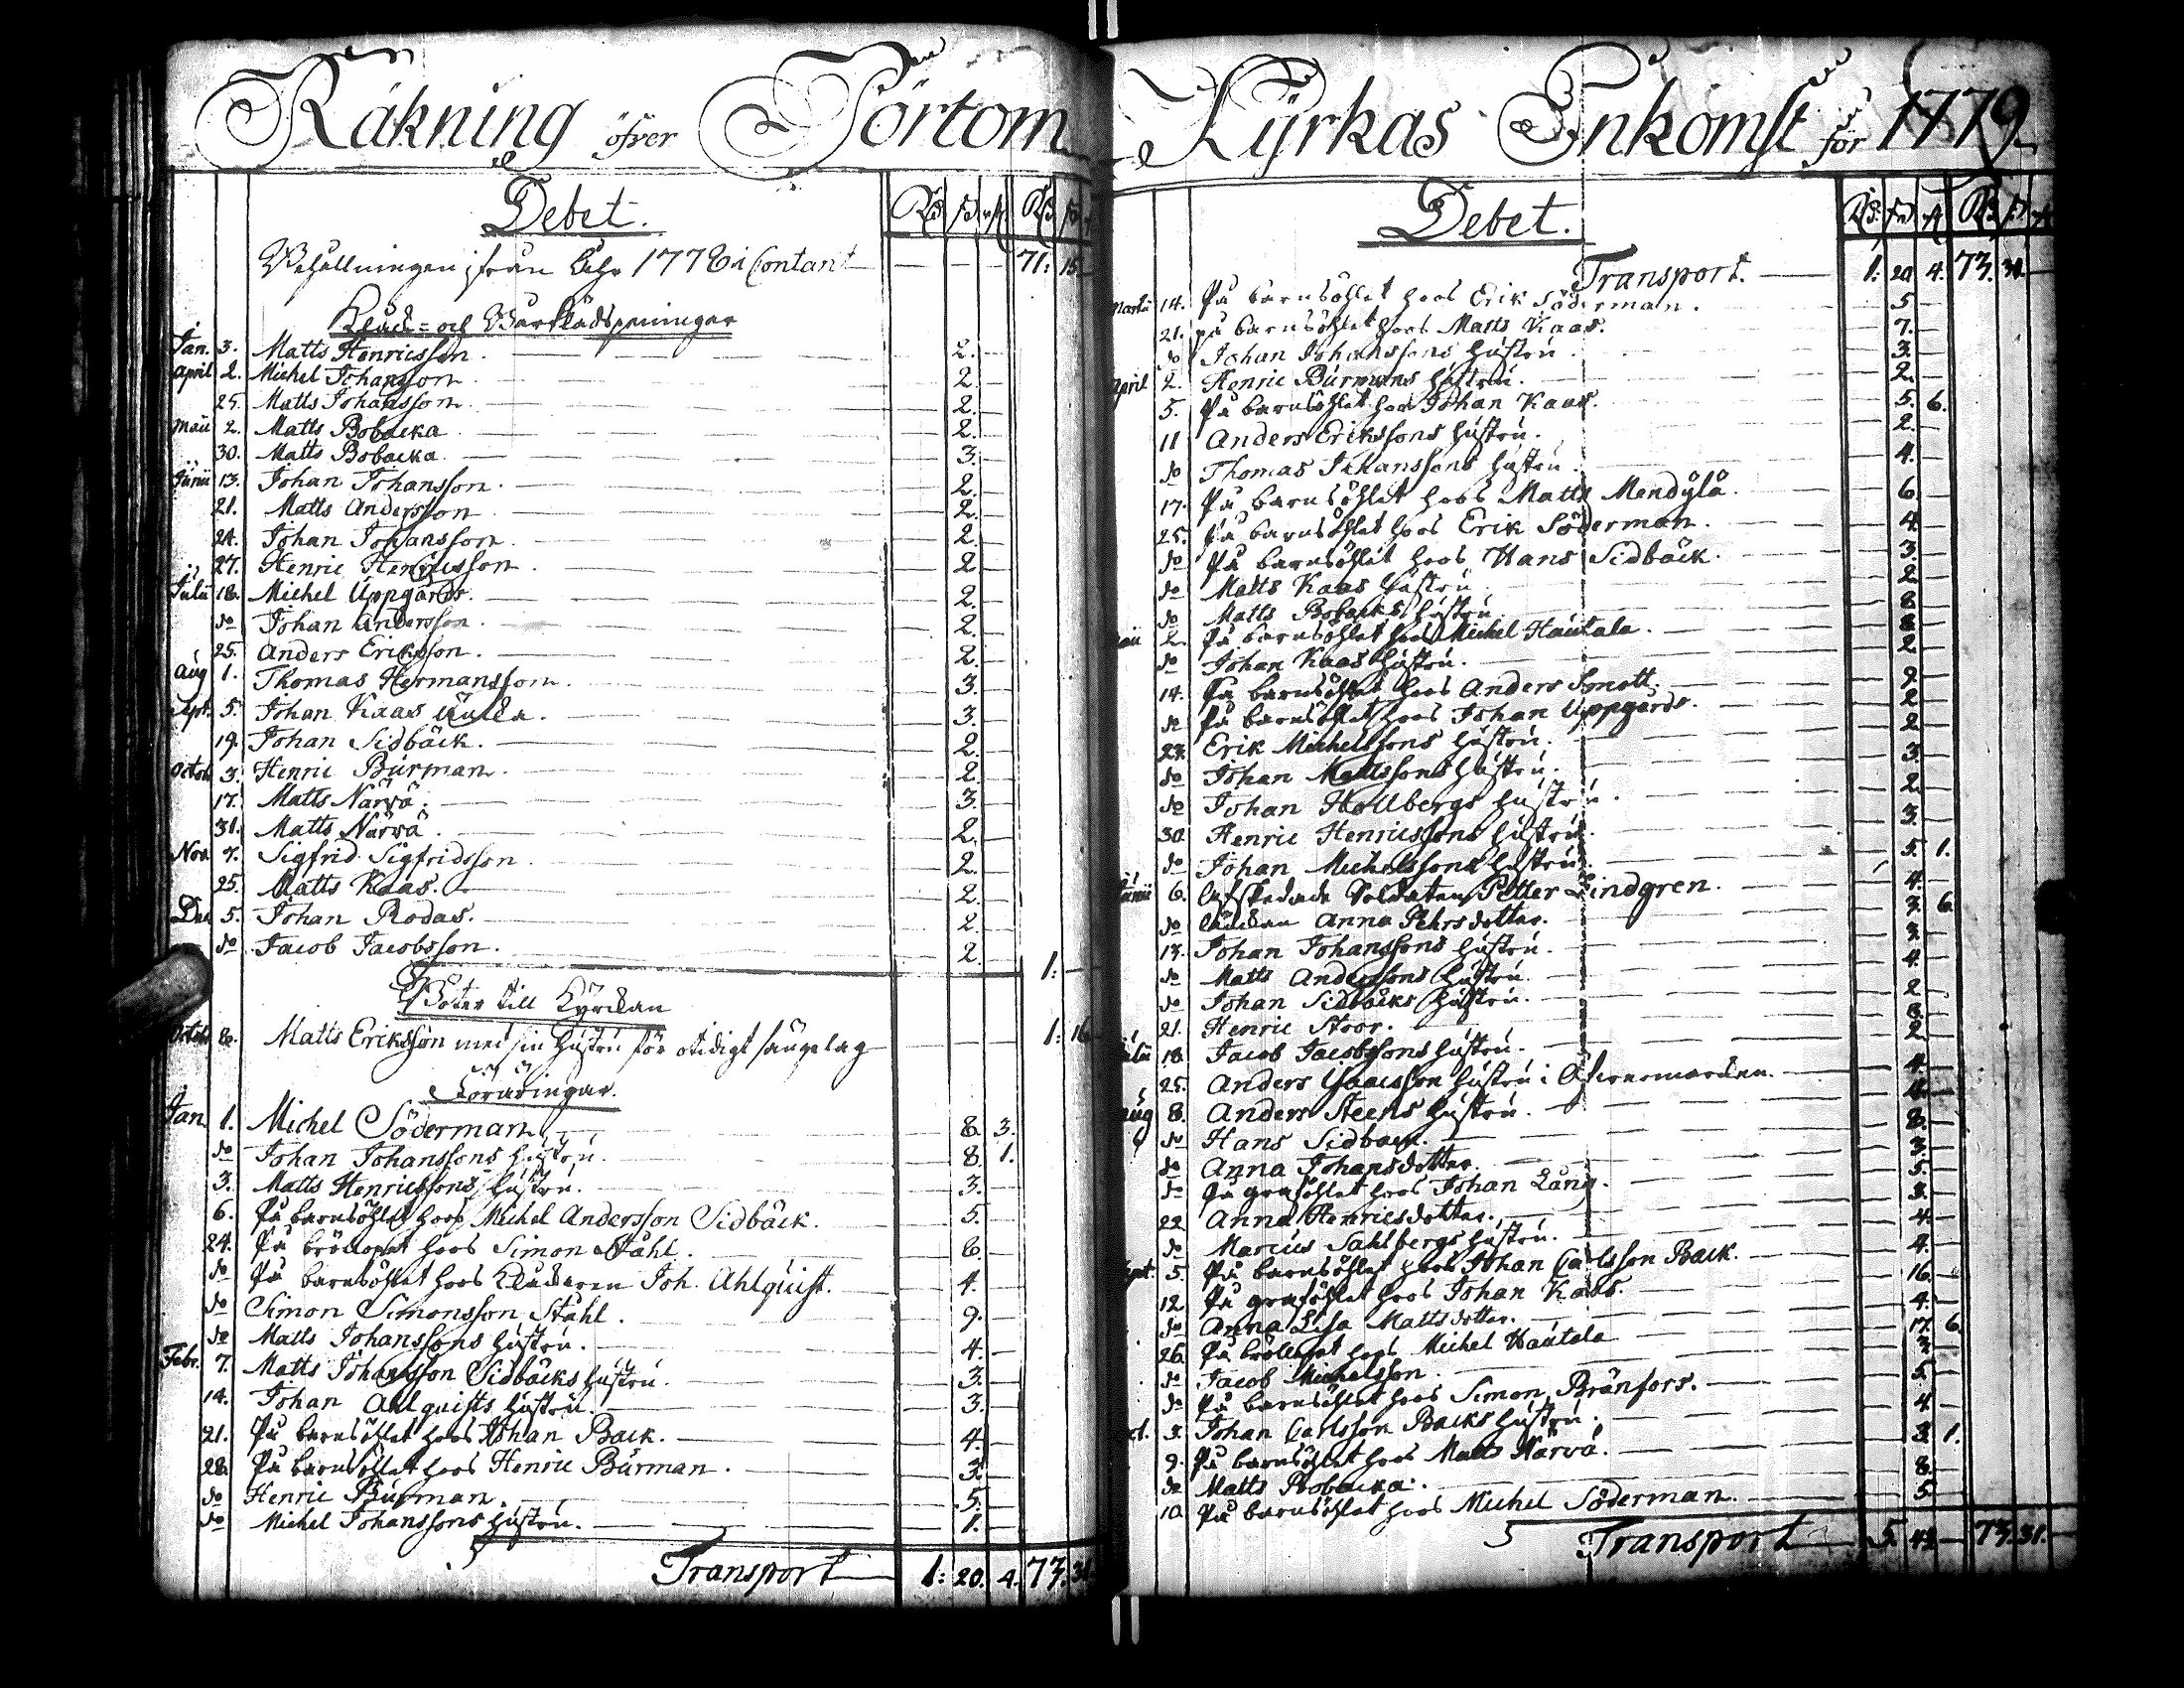 Räkning öfver Pörtom
Debet.
Rd sk rst Rd sk
Behållningen ifrån Åhr 1778 i Contant 71: 15
Kläck- och Bårklädspenningar
Jan. 3. Matts Henricsson. 2.
April 2. Michel Johansson. 2.
25. Matts Johansson. 2.
Maii 2. Matts Bobacka 2.
30. Matts Bobacka. 3.
Junii 13. Johan Johansson. 2.
21. Matts Andersson 2.
24. Johan Johansson. 2.
27. Henric Henricsson 2.
Julii 18. Michel Uppgårds. 2.
do Johan Andersson. 2.
25. Anders Eriksson. 2.
Aug 1. Thomas Hermansson. 3.
Sept. 5. Johan Kaas 3.
19. Johan Sidbäck. 2.
Octob. 3. Henric Burman. 2.
17. Matts Närvä. 3.
31. Matts Närvä. 2.
Nov. 7. Sigfrid Sigfridsson. 2.
25. Matts Kaas. 2.
Dec 5. Johan Rodas. 2.
do Jacob Jacobsson. 2. 1:
Böter till Kyrckan
Octob 8. Matts Eriksson med sin hustru för otidigt sängelag 1: 16
Föräringar.
Jan. 1. Michel Söderman 8. 3.
do Johan Johanssons hustru. 8. 1.
3. Matts Henricssons hustru. 3.
6. På barnsöhlet hoos Michel Andersson Sidbäck. 5.
24. På bröllopet hoos Simon Ståhl. 6.
do På barnsöhlet hoos Klåckaren Joh. Ahlquist. 4.
do Simon Simonsson Ståhl. 9.
do Matts Johanssons hustru. 4.
Febr. 7. Matts Johansson Sidbäcks hustru. 3.
14. Johan Ahlquists hustru. 3.
21. På barnsöhlet hoos Johan Back. 4.
28. På barnsöhlet hoos Henric Burman. 3.
do Henric Burman. 5.
do Michel Johanssons hustru. 1.
Transport 1: 20. 4. 73. 31
Kyrkas Inkomst för 1779
Debet.
Rd sk rst Rd sk rst
Transport. 1: 20 4. 73. 31.
Martii 14. På barnsöhlet hoos Erik Söderman. 5
21. på barnsöhlet hoos Matts Kaas. 7.
do Johan Johanssons hustru. 3.
April 2. Henric Burmans hustru. 2.
5. På barnsöhlet hoos Johan Kaas. 5. 6.
11 Anders Erikssons hustru. 2.
do Thomas Johanssons hustru. 4.
17. På barnsöhlet hoos Matts Mendylä. 6.
25. På barnsöhlet hoos Erik Söderman. 4.
do På barnsöhlet hoos Hans Sidbäck. 3.
do Matts Kaas hustru 2
do Matts Bobacks hustru 8
Maii 2. På barnsöhlet hoos Michel Hautala. 8
do Johan Kaas hustru. 2
14. På barnsöhlet hoos Anders Smott. 9.
do På barnsöhlet hoos Johan Uppgårds. 2
23. Erik Michelssons hustru. 2
do Johan Mattssons hustru. 3.
do Johan Hallbergs hustru. 2.
30. Henric Henricssons hustru. 3.
do Johan Michelssons hustru. 5. 1.
Junii 6. Afskedade Soldaten Petter Lindgren. 4.
do Anna Pehrsdotter. 3. 6
13. Johan Johanssons hustru. 3.
do Matts Anderssons hustru. 4.
do Johan Sidbäcks hustru. 2
21. Henric Stoor. 8.
Julii 18. Jacob Jacobssons hustru. 2.
25. Anders Isaacsson hustru i Öfvermarcken. 4.
Aug 8. Anders Steens hustru. 4.
do Hans Sidback. 8.
do Anna Johansdotter. 3.
do På grafölet hoos Johan Lång. 5.
22 Anna Henricsdotter. 3.
do Marcus Sahlbergs hustru. 4.
Sept. 5. På barnsöhlet hoos Johan Carlsson Back. 4.
12. På grafölet hoos Johan Kaas. 16.
do Anna Lisa Mattsdotter. 4.
26. På bröllopet hoos Michel Hautala 17. 6.
do Jacob Michelsson. 3
do På barnsöhlet hoos Simon Bränfors. 5.
Oct. 3. Johan Carlsson Backs hustru. 4.
9. På barnsöhlet hoos Matts Närvä. 3. 1.
do Matts Bobacka. 8.
10. På barnsöhlet hoos Michel Söderman. 5.
Transport 5. 42 73. 31.